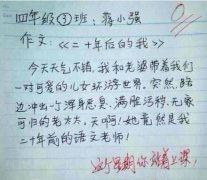 四年级③班：蒋小强
作文：《二十年后的我》
今天天气不错，我和老婆带着我们
一对可爱的儿女环游世界。突然，路
边冲出一个浑身恶臭、满脸污秽、无家
可归的老太太，天啊！她竟然是我
二十年前的语文老师！
这个星期你站着上课。